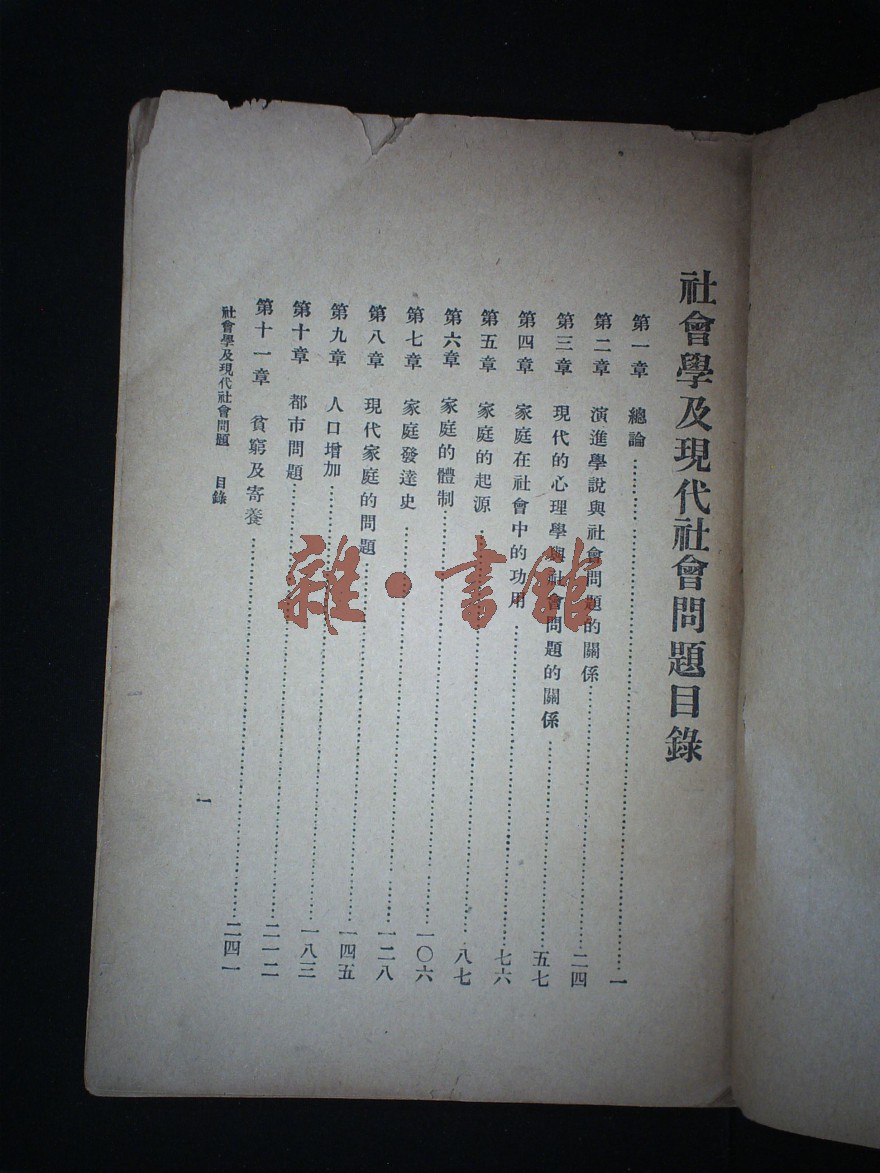 社會學及現代社會問題目錄
第一章 總論…………一
第二章 演進學說與社會問題的關係…………二四
第三章 現代的心理學與社會問題的關係…………五七
第四章 家庭在社會中的功用…………七六
第五章 家庭的起源…………八七
第六章 家庭的體制…………一〇六
第七章 家庭發達史…………一二八
第八章 現代家庭的問題…………一四五
第九章 人口增加…………一八三
第十章 都市問題…………二一二
第十一章 貧窮及寄養…………二四一
社會學及現代社會問題 目錄
一
雜·書館